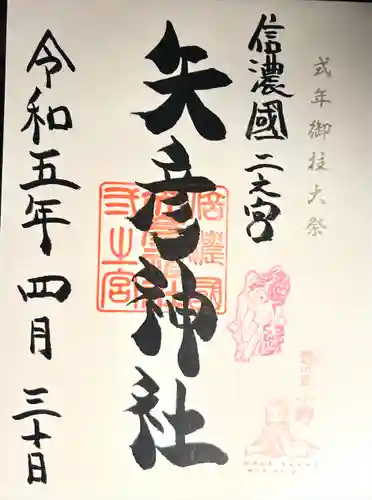 式年御柱大祭
信濃國二之宮
矢彦神社
令和五年四月三十日
信濃國
矢彦神社
二之宮